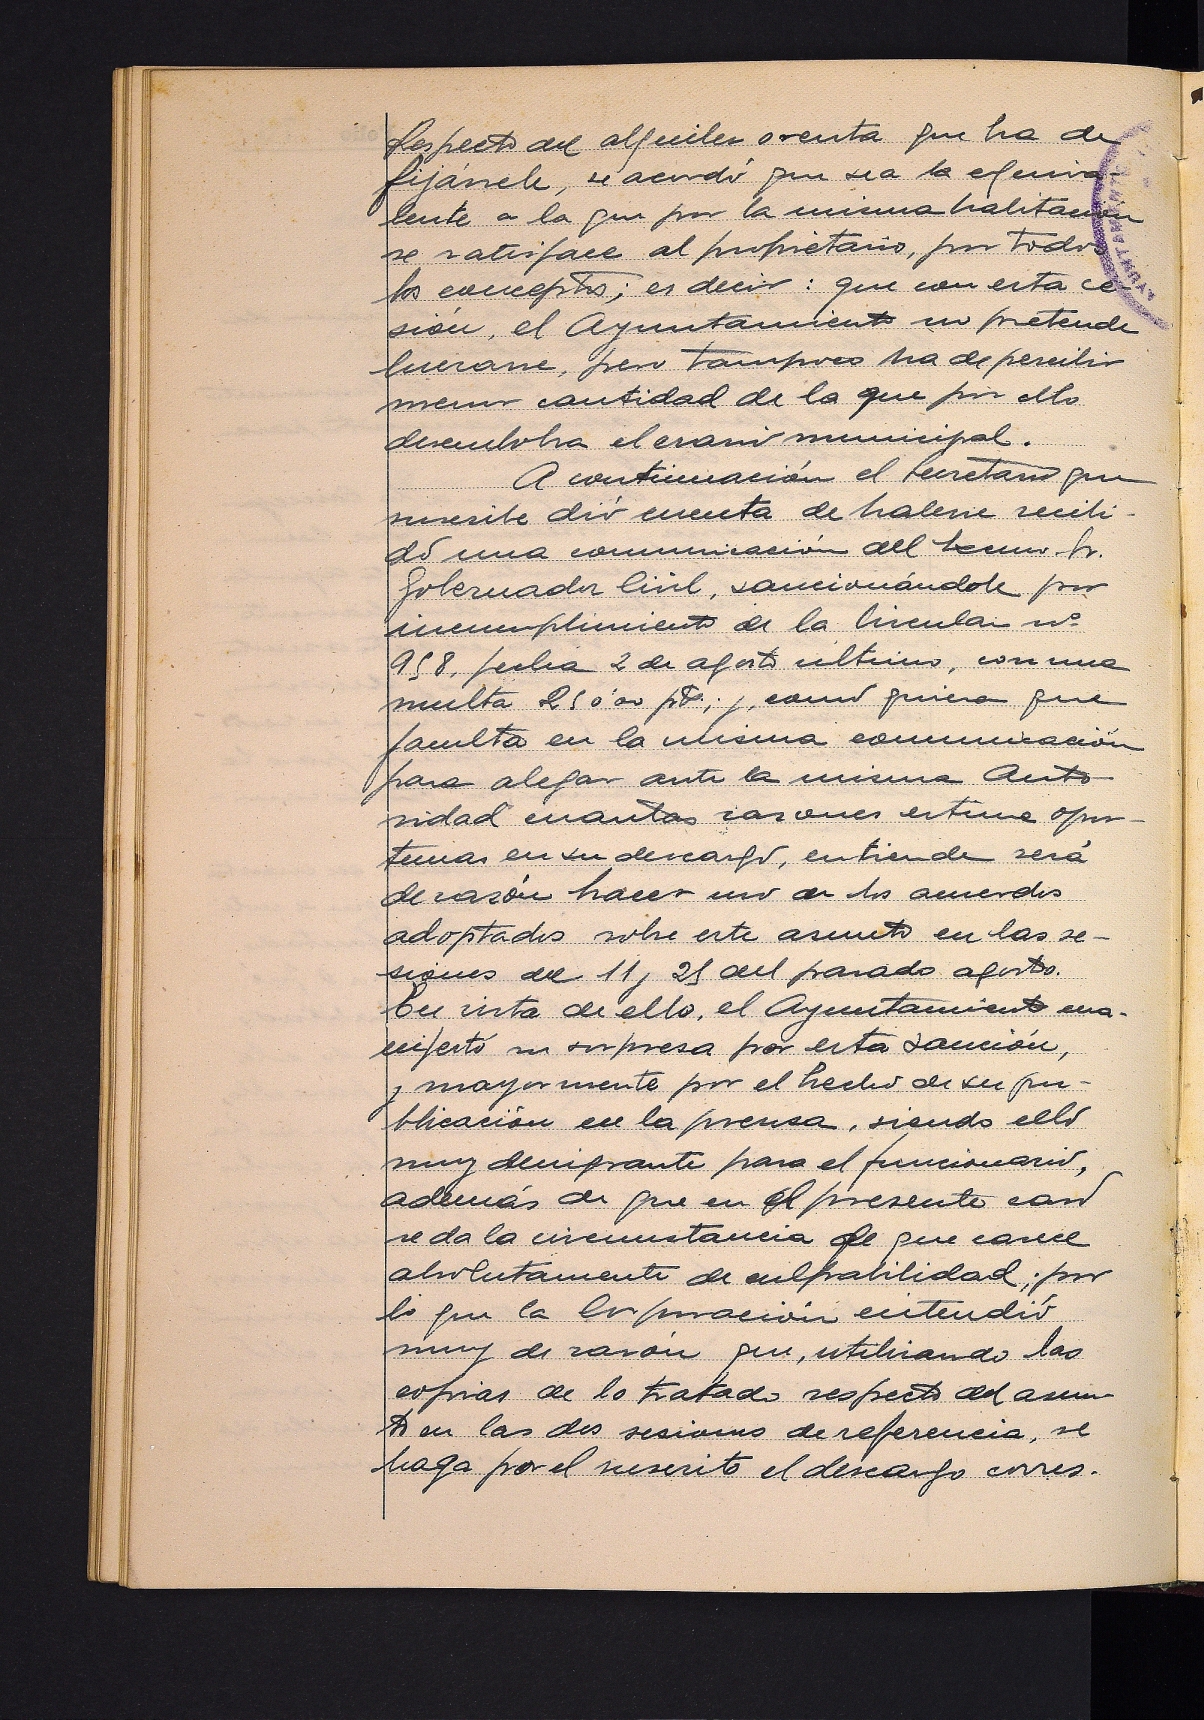 Respecto del alquiler o renta que ha de
fijársele, se acordó que sea la equiva-
lente a la que por la misma habitación
se satisface al propietario, por todos
los conceptos; es decir: que con esta ce-
sión, el Ayuntamiento no pretende
lucrarse, pero tampoco ha de percibir
menor cantidad de la que por ello
desembolsa el erario municipal.
A continuación el Secretario que
suscribe dió cuenta de haberse recibi-
do una comunicación del Excmo. Sr.
Gobernador Civil, sancionándole por
incumplimiento de la Circular nº
958, fecha 2 de agosto último, con una
multa 250'00 pts.; y, como quiera que
faculta en la misma comunicación
para alegar ante la misma Auto-
ridad cuantas razones estime opor-
tunas en su descargo, entiende será
de razón hacer uso de los acuerdos
adoptados sobre este asunto en las se-
siones del 11 y 25 del pasado agosto.
En vista de ello, el Ayuntamiento ma-
nifestó su sorpresa por esta sanción,
y mayormente por el hecho de su pu-
blicación en la prensa, siendo ello
muy denigrante para el funcionario,
además de que en el presente caso
se da la circunstancia de que carece
absolutamente de culpabilidad; por
lo que la Corporación entendió
muy de razón que, utilizando las
copias de lo tratado respecto del asun-
to en las dos sesiones de referencia, se
haga por el suscrito el descargo corres-
AYUNTAMIENTO